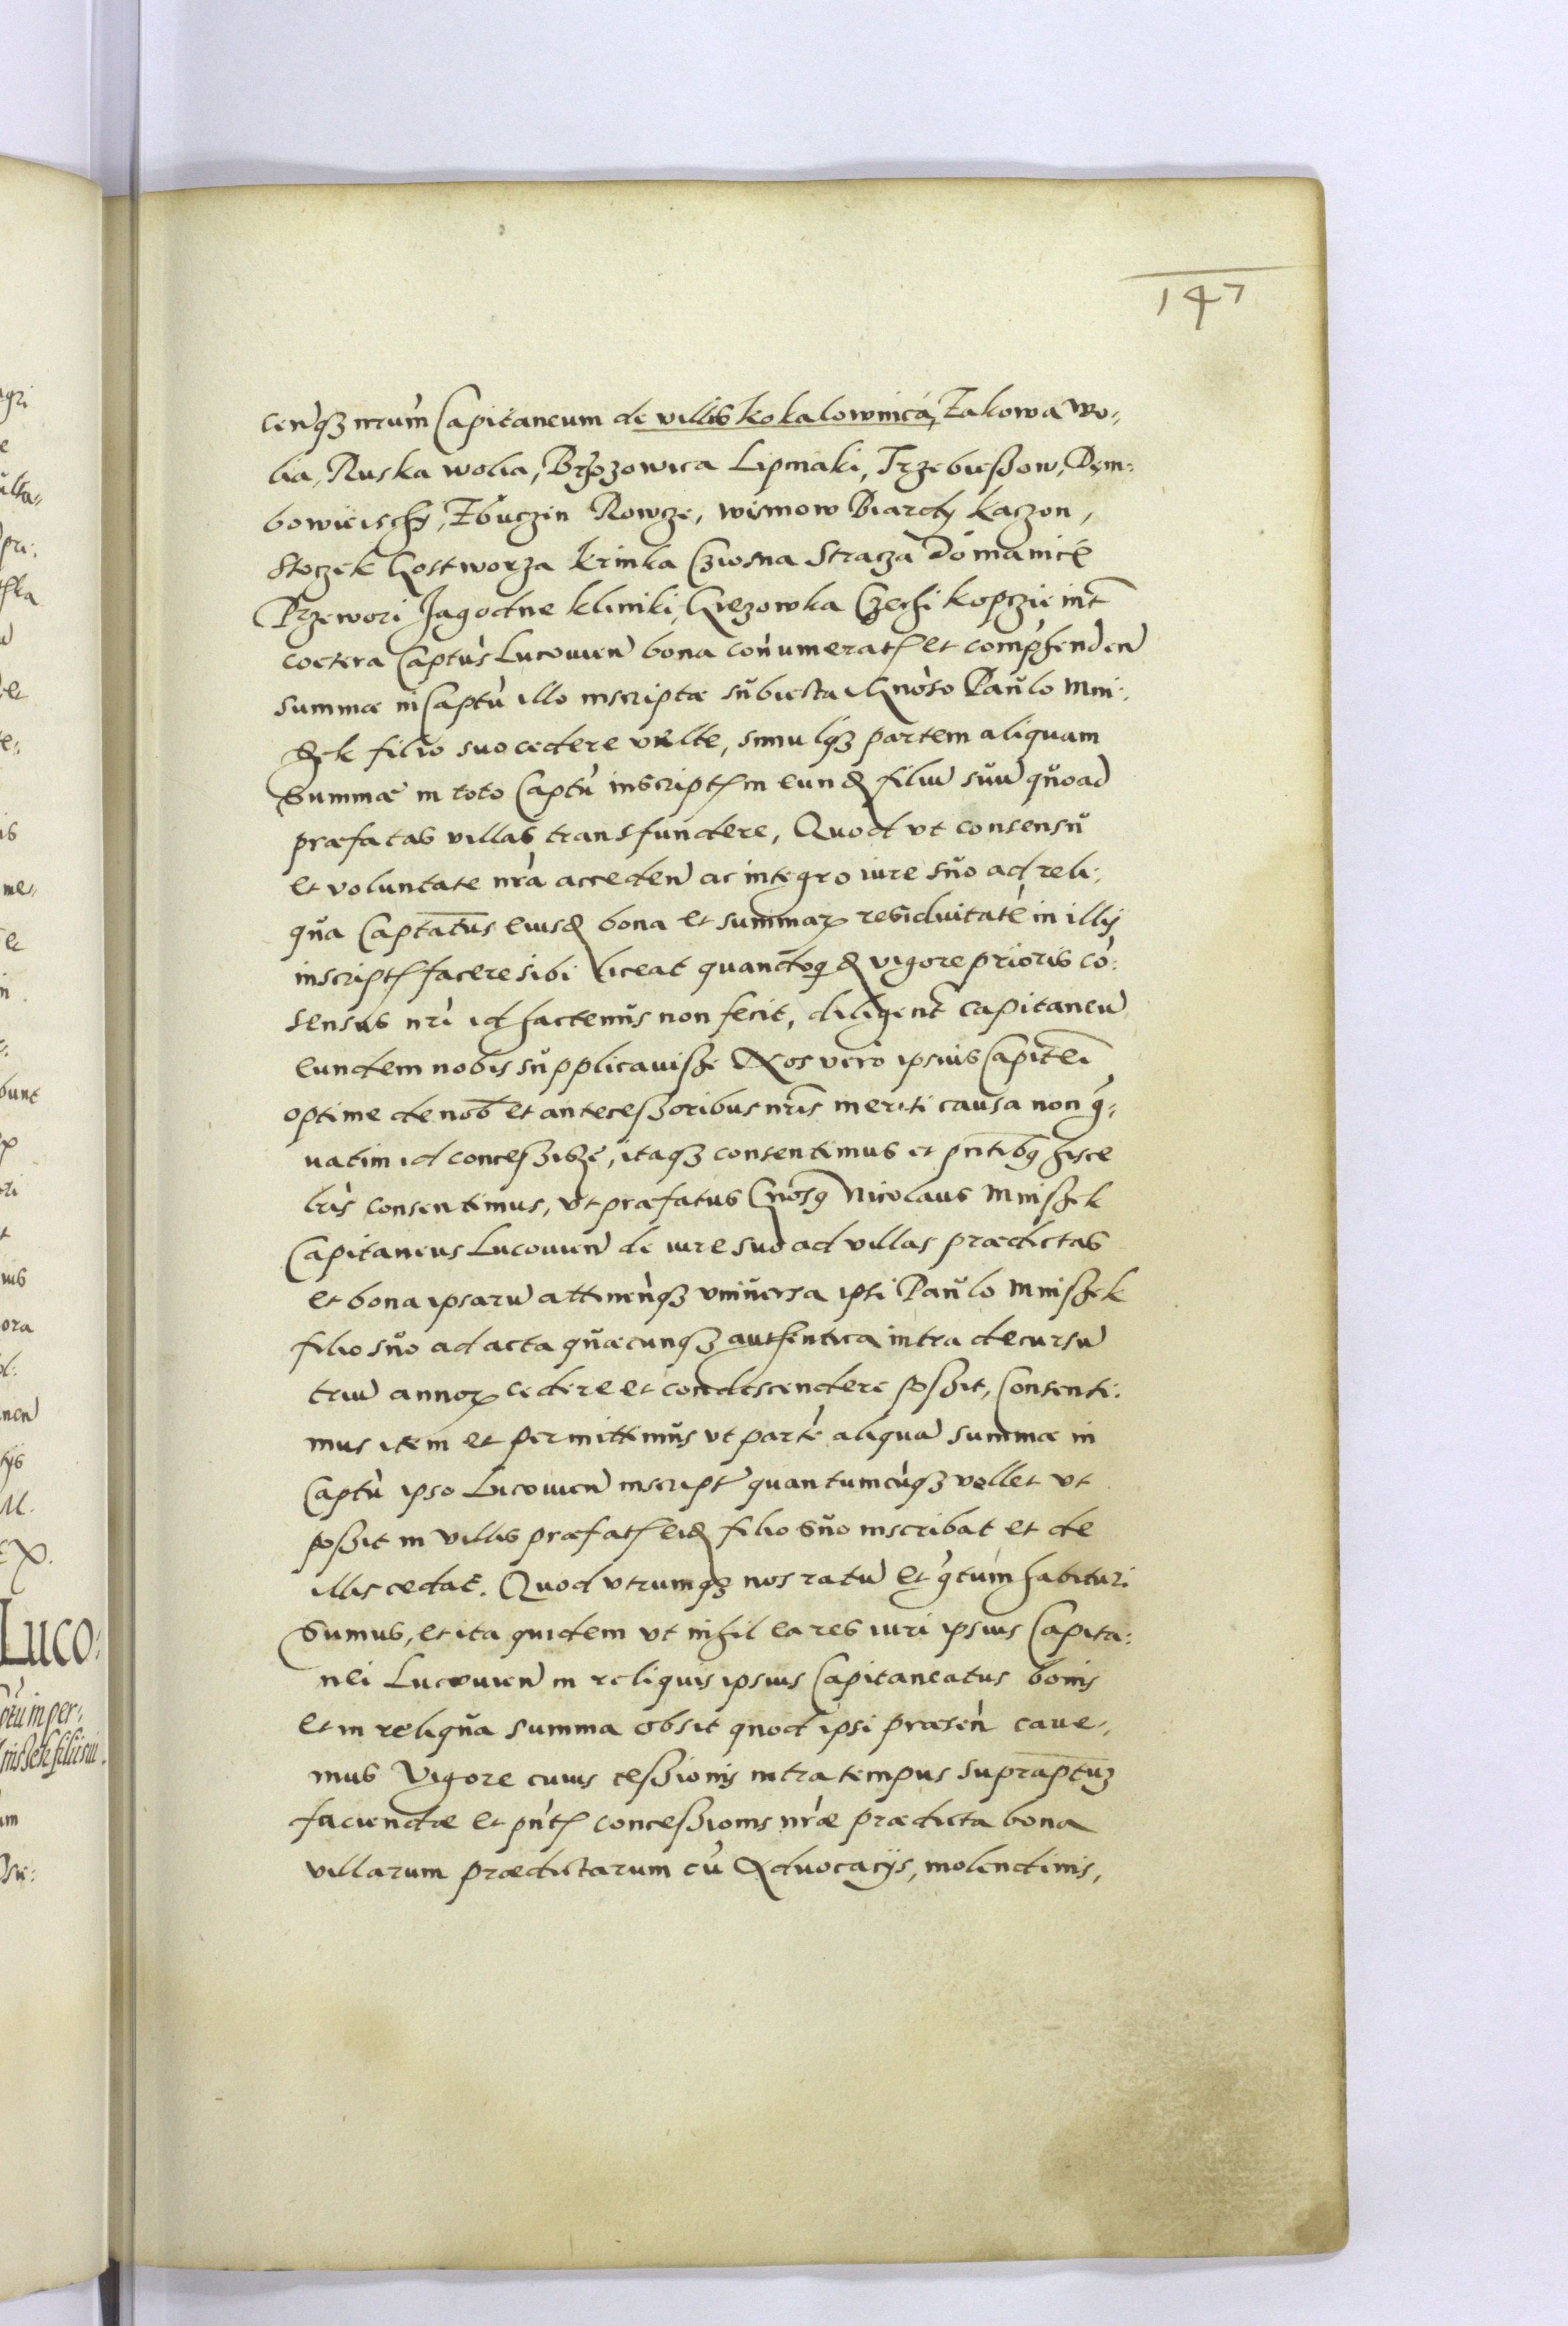 147
cenq₃ nrum Capitaneum de villis Kokalownica, Zakowa Wo:
lia, Ruska wolia, Brzozowica Lipniaki, Trzebieszow, Dem:
bowiei, Zbuczin Rowcze, wisniow Biardy Kaczon,
Stoczek Gostworza Krinka Cziosna Stracza Domanice
Przewori Jagodne kliniki, Grezowka Czechi kopczie int
coetera Captus Lucovien bona connumerat et comprehenden
summae in Captu illo inscriptae subiecta Gnoso Paulo Mni:
szek filio suo cedere velle, simulq₃ partem aliquam
Summae in toto Captu inscript in eund filiu suu quoad
praefatas villas transfundere, Quod ut consensu
et voluntate nra acceden ac integro iure suo ad reli:
qua Captatus eiusd bona et summar residuitate in illis
inscript facere sibi liceat quandoq d vigore prioris co:
sensus nri id hactenus non fecit, diligent capitaneu
eundem nobis supplicavisse Nos vero ipsius Capitei
optime de nob et antecessoribus nris meriti causa non g:
vatim id concessisse, itaq₃ consentimus et pntibq hisce
lris consentimus, ut praefatus Gnosq Nicolaus Mniszek
Capitaneus Lucovien de iure suo ad villas praedictas
et bona ipsaru attinenq₃ universa ipsi Paulo Mniszek
filio suo ad acta quaecunq₃ authentica intra decursu
triu annor cedere et condescendere possit, Consenti:
mus item et permittimus ut parte aliqua summae in
Captu ipso Lucovien inscript quantumcuq₃ vellet ut
possit in villis praefat eid filio suo inscribat et de
illis cedat. Quod utrumq₃ nos ratu et gtum habituri
Sumus, et ita quidem ut nihil ea res iuri ipsius Capita:
nei Lucovien in reliquis ipsius Capitaneatus bonis
et in reliqua summa obsit quod ipsi praesen cave:
mus Vigore cuius cessionis intra tempus supraptum
faciendae et pnt concessionis nrae praedicta bona
villarum praedictarum cu Advocacijs, molendinis,